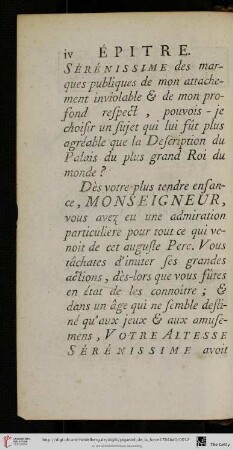 iv ÉPITRE.
SÉRÉNISSIME des mar-
ques publiques de mon attache-
ment inviolable & de mon pro-
fond respect, pouvois-je
choisir un sujet qui lui fût plus
agréable que la Description du
Palais du plus grand Roi du
monde ?
Dès votre plus tendre enfan-
ce, MONSEIGNEUR,
vous avez eu une admiration
particuliere pour tout ce qui ve-
noit de cet auguste Pere. Vous
tâchates d'imiter ses grandes
actions, dès-lors que vous fûtes
en état de les connoitre ; &
dans un âge qui ne semble desti-
né qu'aux jeux & aux amuse-
mens, VOTRE ALTESSE
SÉRÉNISSIME avoit